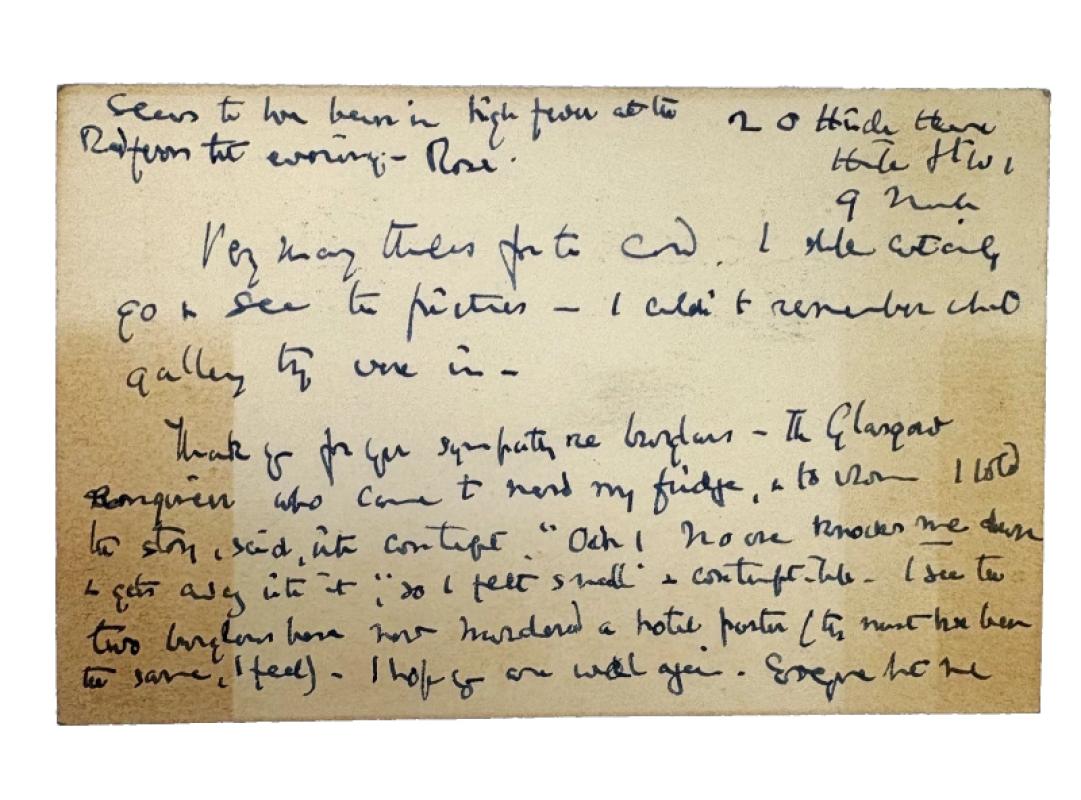 Seems to have been in high fever at the
Redfern that evening – Rose.
20 Hinde House
Hinde St W1
9 March
Very many thanks for the card. I shall certainly
go & see the pictures – I couldn't remember what
gallery they were in –
Thank you for your sympathy re burglars – The Glasgow
engineer who came to mend my fridge, & to whom I told
the story, said, with contempt, "Och! No one knocks me down
& gets away with it"; so I felt small & contemptible – I see the
two burglars have now murdered a hotel porter (they must have been
the same, I feel) – I hope you are well again. Everyone but me